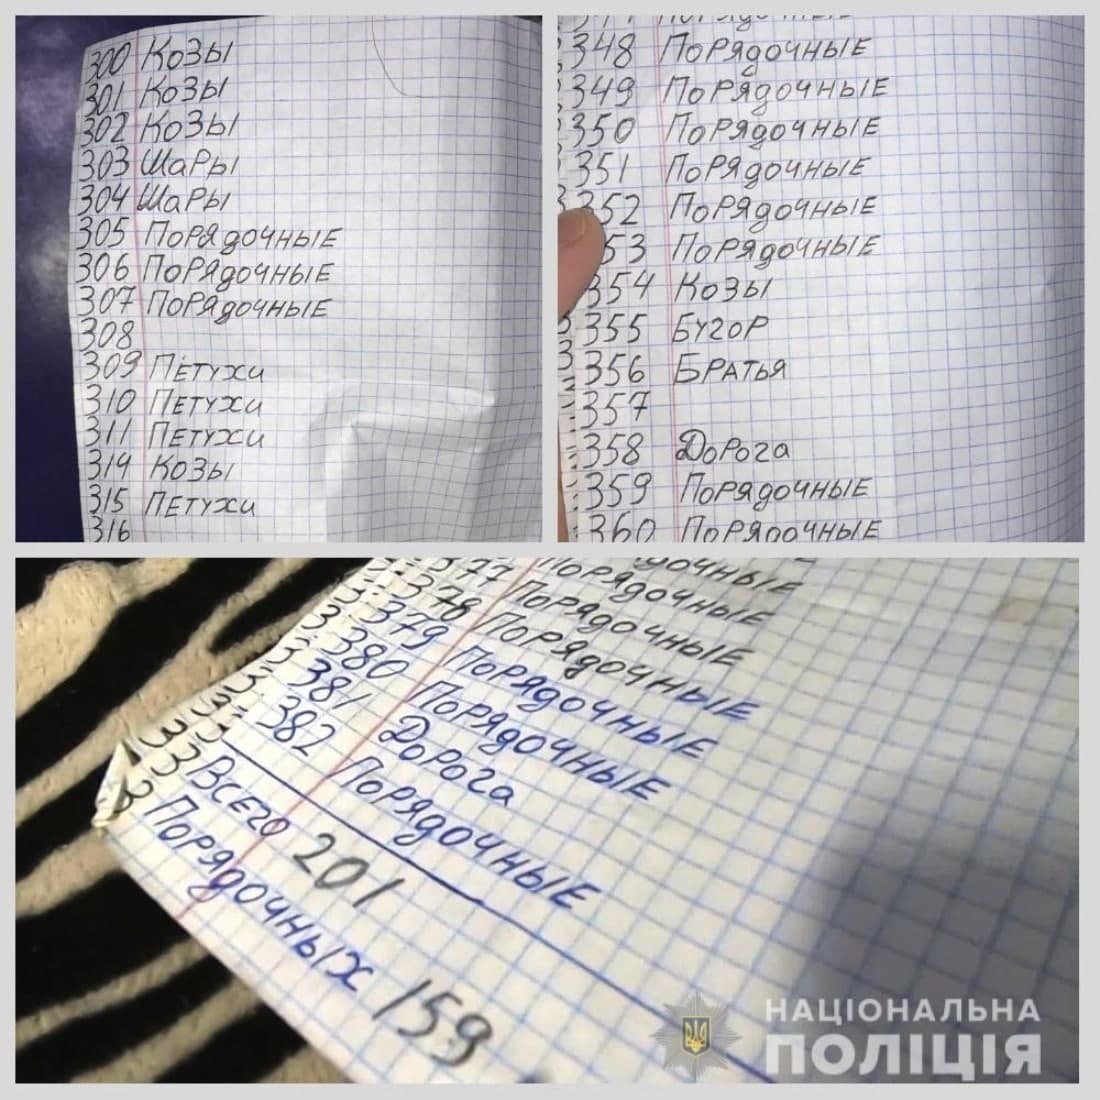 300 Козы
301 Козы
302 Козы
303 Шары
304 Шары
305 Порядочные
306 Порядочные
307 Порядочные
308
309 Петухи
310 Петухи
311 Петухи
314 Козы
315 Петухи
316
348 Порядочные
349 Порядочные
350 Порядочные
351 Порядочные
352 Порядочные
53 Порядочные
354 Козы
355 Бугор
356 Братья
357
358 Дорога
359 Порядочные
360 Порядочные
Порядочные
377 Порядочные
378 Порядочные
379 Порядочные
380 Порядочные
381 Дорога
382 Порядочные
Всего 201
Порядочных 159
НАЦІОНАЛЬНА
ПОЛІЦІЯ